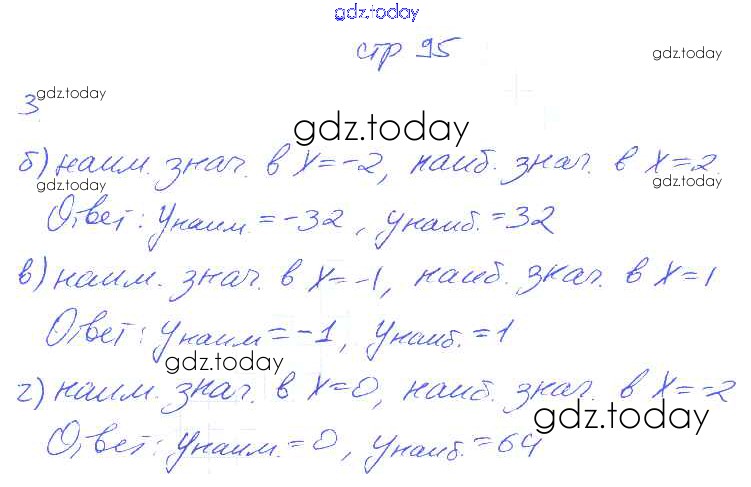 gdz.today
стр 95
gdz.today
gdz.today
3
gdz.today
б) наим. знач. в x=-2, наиб. знач. в x=2
gdz.today
gdz.today
Ответ: yнаим.=-32, yнаиб.=32
в) наим. знач. в x=-1, наиб. знач. в x=1
Ответ: yнаим=-1, yнаиб.=1
gdz.today
г) наим. знач. в x=0, наиб. знач. в x=-2
gdz.today
Ответ: yнаим.=0, yнаиб.=64